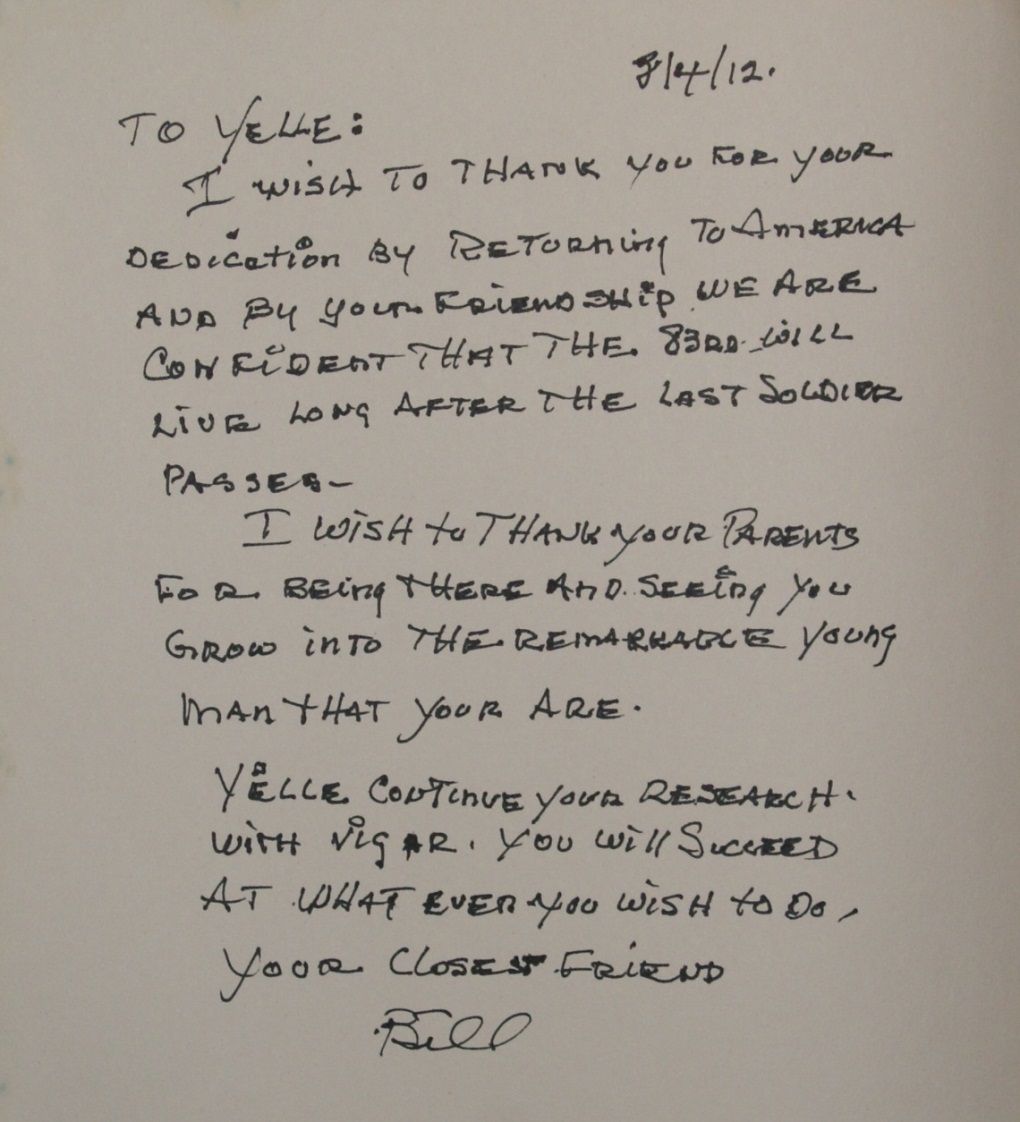 8/4/12.
TO YELLE:
I WISH TO THANK YOU FOR YOUR
DEDICATION BY RETURNING TO AMERICA
AND BY YOUR FRIENDSHIP WE ARE
CONFIDENT THAT THE 83RD WILL
LIVE LONG AFTER THE LAST SOLDIER
PASSES-
I WISH TO THANK YOUR PARENTS
FOR BEING THERE AND SEEING YOU
GROW INTO THE REMARKABLE YOUNG
MAN THAT YOUR ARE.
YELLE CONTINUE YOUR RESEARCH.
WITH VIGAR. YOU WILL SUCCEED
AT WHAT EVER YOU WISH TO DO,
YOUR CLOSEST FRIEND
Bill